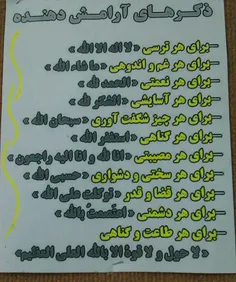 ذکرهای آرامش دهنده
–برای هر ترسی « لا اله الا الله »
–برای هر غم و اندوهی « ما شاء الله »
–برای هر نعمتی « الحمد لله »
–برای هر آسایشی « الشکر لله »
–برای هر چیز شگفت آوری « سبحان الله »
–برای هر گناهی « استغفر الله »
–برای هر مصیبتی « انا لله و انا الیه راجعون »
–برای هر سختی و دشواری « حسبی الله »
–برای هر قضا و قدر « توکلت علی الله »
–برای هر دشمنی « اعتصمت بالله »
–برای هر طاعت و گناهی
« لا حول و لا قوة الا بالله العلی العظیم »